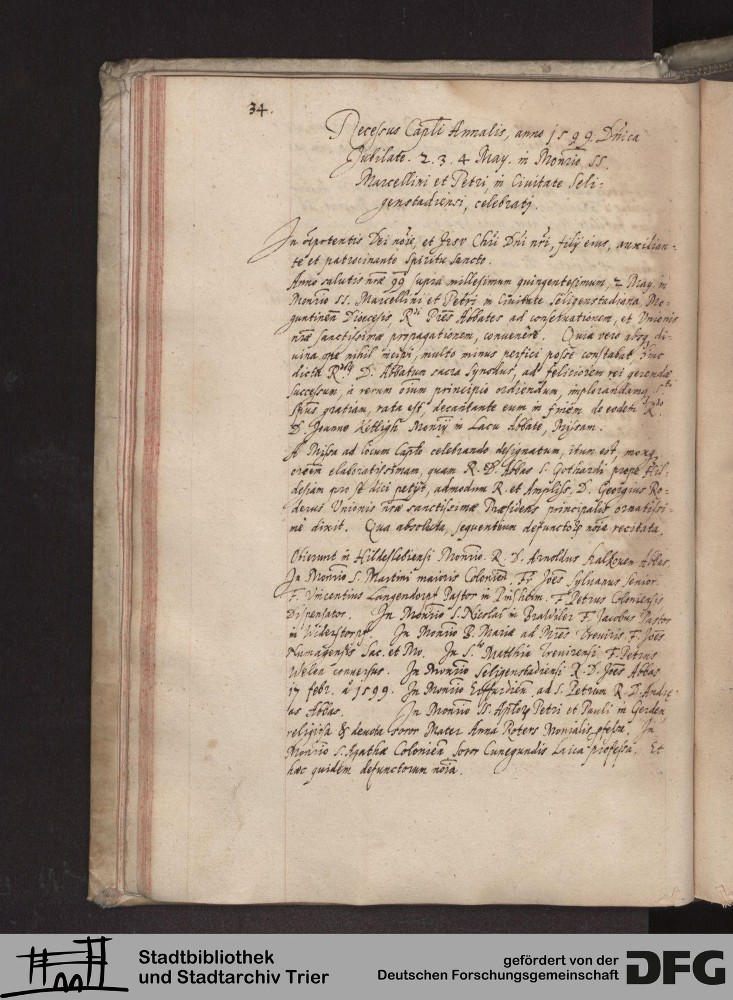 34.
Recessus Capli Annalis, anno 1599. Dnica
Jubilate. 2. 3. 4 May. in Monrio SS.
Marcellini et Petri, in Ciuitate Seli-
genstadiensi, celebratj.
In oipotentis Dei noie, et Jesv Chri Dni nri, filij eius, auxilian-
te et patrocinante spiritu sancto.
Anno salutis nrae 99 supra millesimum quingentesimum, 2 May. in
Monrio SS. Marcellini et Petri in Ciuitate Seligenstadiana, Mo-
guntinen Dioecesis, Rdi Pres Abbates ad conseruationem, et Vnionis
nrae sanctissimae propagationem, conuenere. Quia vero absq, di-
uina ope nihil incipi, multo minus perfici posse constabat
dicta D. Abbatum sacra Synodus, ad feliciorem rei gerendae
successum, a rerum oium principio ordiendum, implorandamq, Sti
Spus gratiam, rata est, decantante eum in finem de eodem R.
D. Joanne Ketligh Monrij in Lacu Abbate, Missam.
A Missa ad locum Capli celebrando designatum, itum est, moxq
oroem elaboratissimam, quam R. D. Abbas S. Gothardi prope Hil-
desiam pro se dici petijt, admodum R. et Ampliss. D. Georgius Ro-
derus Vnionis nrae sanctissimae Praesidens principalis ornatissi-
me dixit. Qua absoluta, sequentium defunctorum noia recitata.
Obierunt in Hildeslebiensi Monrio. R. D. Arnoldus Kalkouen Abbas.
In Monrio S. Martini maioris Colonien. FF Joes Syluanus senior.
F. Vincentius Langendorp Pastor in F. Petrus Coloniensis
Dispensator. In Monrio S. Nicolai in Brawiler F. Jacobus Pastor
in Widerstorpf. In Monrio B. Mariae ad Mres Treuiris F. Joes
Numagensis Sac. et Mo. In S. Matthia Treuirensi F. Petrus
Welen conuersus. In Monrio Seligenstadiensi R. D. Joes Abbas
17 febr. a 1599. In Monrio Erffurdien. ad S. Petrum R. D. Andre-
as Abbas. In Monrio SS. Aplor Petri et Pauli in Gerden
religiosa & deuota soror Mater Anna Roters Monialis pfessa. In
Monrio S. Agathae Colonien soror Cunegundis Laica professa. Et
haec quidem defunctorum noia.
Stadtbibliothek
und Stadtarchiv Trier
gefördert von der
Deutschen Forschungsgemeinschaft
DFG